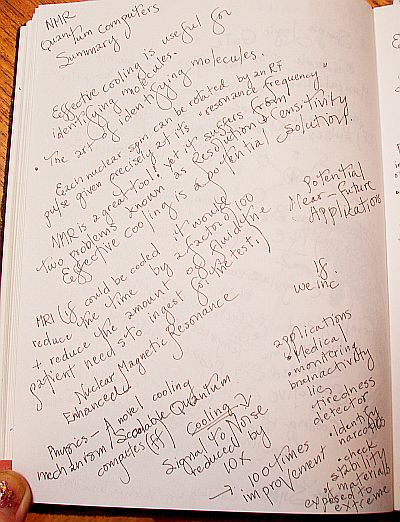 NMR
Quantum Computers
Summary
Effective cooling is useful for
identifying molecules.
• The art of identifying molecules.
Each nuclear spin can be rotated by an RF
pulse given precisely at its "resonance frequency"
NMR is a great tool: yet it suffers from
two problems known as Resolution & Sensitivity
Effective cooling is a potential solution.
Potential
Near-Future
Applications
MRI (if could be cooled it would
reduce the time by a factor of 100
+ reduce the amount of fluid the
patient needs to ingest for the test.)
Nuclear Magnetic Resonance
Enhanced
If
we inc
Physics - A novel cooling
mechanism / Scalable Quantum
computes (A)
Cooling →
Signal to Noise
reduced by
10x
→ 100 times
improvement
applications
• Medical
• monitering
brain activity
lies
• tiredness
detector
• Identify
narcotics
• check
stability
materials
exposed to
extreme